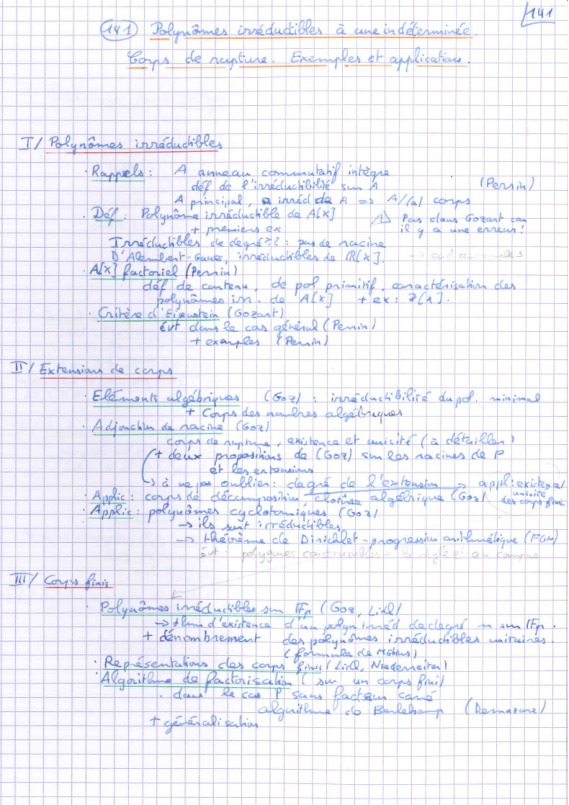 141
(141) Polynômes irréductibles à une indéterminée.
Corps de rupture. Exemples et applications.
I/ Polynômes irréductibles
· Rappels : A anneau commutatif intègre
déf de l'irréductibilité sur A (Perrin)
A principal, a irréd de A => A/(a) corps
· Déf : Polynôme irréductible de A[X] ⚠ Pas dans Gozart car
+ premiers ex il y a une erreur!
Irréductibles de degré ≥ 2 : pas de racine
D'Alembert-Gauss, irréductibles de R[X].
· A[X] factoriel (Perrin)
déf de contenu, de pol primitif, caractérisation des
polynômes irr. de A[X] + ex : Z[X].
· Critère d'Eisenstein (Gozart)
évt dans le cas général (Perrin)
+ exemples (Perrin)
II/ Extensions de corps
· Eléments algébriques (Goz) : irréductibilité du pol. minimal
+ Corps des nombres algébriques
· Adjonction de racine (Goz)
corps de rupture, existence et unicité (à détailler)
(+ deux propositions de (Goz) sur les racines de P
et les extensions
→ à ne pas oublier : degré de l'extension → appli: existence/
unicité des corps finis
· Applic : corps de décomposition clôture algébrique (Goz)
· Applic : polynômes cyclotomiques (Goz)
→ ils sont irréductibles
→ théorème de Dirichlet - progression arithmétique (FGN)
évt polygones constructibles à la règle et au compas
III/ Corps finis
· Polynômes irréductibles sur Fp (Goz, Lidl)
→ thm d'existence d'un polyn irréd de degré n sur Fp.
+ dénombrement des polynômes irréductibles unitaires.
(formule de Möbius)
· Représentations des corps finis (Lidl, Niederreiter)
· Algorithme de factorisation (sur un corps fini)
· dans le cas P sans facteur carré
algorithme de Berlekamp (Demazure)
+ généralisation